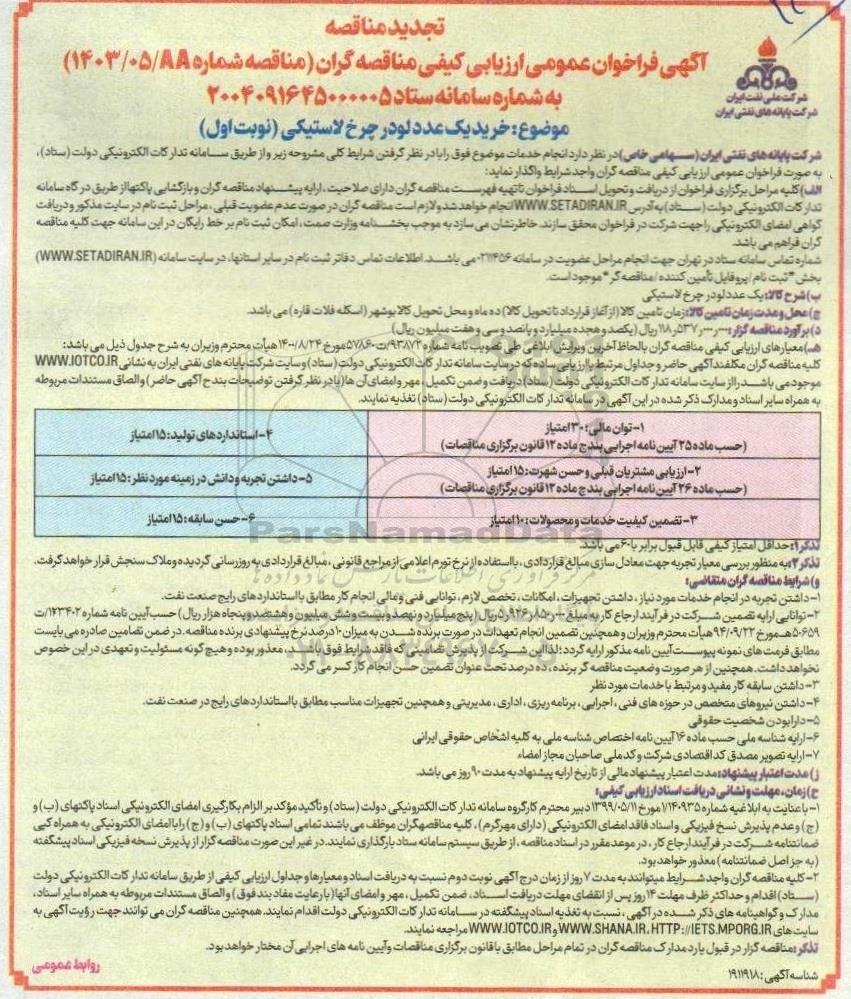 تجدید مناقصه
آگهی فراخوان عمومی ارزیابی کیفی مناقصه گران (مناقصه شماره ۱۴۰۳/۰۵/AA)
به شماره سامانه ستاد ۲۰۰۴۰۹۱۶۴۵۰۰۰۰۰۵
شرکت ملی نفت ایران
شرکت پایانه های نفتی ایران
موضوع: خرید یک عدد لودر چرخ لاستیکی (نوبت اول)
شرکت پایانه های نفتی ایران (سهامی خاص) در نظر دارد انجام خدمات موضوع فوق را با در نظر گرفتن شرایط کلی مشروحه زیر و از طریق سامانه تدارکات الکترونیکی دولت (ستاد)،
به صورت فراخوان عمومی ارزیابی کیفی مناقصه گران واجد شرایط واگذار نماید:
الف) کلیه مراحل برگزاری فراخوان از دریافت و تحویل اسناد فراخوان تا تهیه فهرست مناقصه گران دارای صلاحیت، ارایه پیشنهاد مناقصه گران و بازگشایی پاکتها از طریق درگاه سامانه
تدارکات الکترونیکی دولت (ستاد) به آدرس WWW.SETADIRAN.IR انجام خواهد شد و لازم است مناقصه گران در صورت عدم عضویت قبلی، مراحل ثبت نام در سایت مذکور و دریافت
گواهی امضای الکترونیکی را جهت شرکت در فراخوان محقق سازند. خاطرنشان می سازد به موجب بخشنامه وزارت صمت، امکان ثبت نام بر خط رایگان در این سامانه جهت کلیه مناقصه
گران فراهم می باشد.
شماره تماس سامانه ستاد در تهران جهت انجام مراحل عضویت در سامانه ۰۲۱۱۴۵۶ می باشد. اطلاعات تماس دفاتر ثبت نام در سایر استانها، در سایت سامانه (WWW.SETADIRAN.IR)
بخش "ثبت نام/پروفایل تأمین کننده/مناقصه گر" موجود است.
ب) شرح کالا: یک عدد لودر چرخ لاستیکی
ج) محل و مدت زمان تامین کالا: زمان تامین کالا (از آغاز قرارداد تا تحویل کالا) ده ماه و محل تحویل کالا بوشهر (اسکله فلات قاره) می باشد.
د) برآورد مناقصه گزار: ۱۱۸,۵۳۷,۰۰۰,۰۰۰ ریال (یکصد و هجده میلیارد و پانصد و سی و هفت میلیون ریال)
هـ) معیارهای ارزیابی کیفی مناقصه گران با لحاظ آخرین ویرایش ابلاغی طی تصویب نامه شماره ۹۳۸۷۲/ت۵۷۸۶۰ مورخ ۱۴۰۰/۸/۲۴ هیأت محترم وزیران به شرح جدول ذیل می باشد:
کلیه مناقصه گران مکلفند آگهی حاضر و جداول مرتبط با ارزیابی ساده که در سایت سامانه تدارکات الکترونیکی دولت (ستاد) و سایت شرکت پایانه های نفتی ایران به نشانی WWW.IOTCO.IR
موجود می باشد را از سایت سامانه تدارکات الکترونیکی دولت (ستاد) دریافت و ضمن تکمیل، مهر و امضای آن ها (با در نظر گرفتن توضیحات بند ح آگهی حاضر) و الصاق مستندات مربوطه
به همراه سایر اسناد و مدارک ذکر شده در این آگهی در سامانه تدارکات الکترونیکی دولت (ستاد) تغذیه نمایند.
۱- توان مالی: ۳۰ امتیاز
(حسب ماده ۲۵ آیین نامه اجرایی بند ج ماده ۱۲ قانون برگزاری مناقصات)
۴- استانداردهای تولید: ۱۵ امتیاز
۲- ارزیابی مشتریان قبلی و حسن شهرت: ۱۵ امتیاز
(حسب ماده ۲۶ آیین نامه اجرایی بند ج ماده ۱۲ قانون برگزاری مناقصات)
۵- داشتن تجربه و دانش در زمینه مورد نظر: ۱۵ امتیاز
۳- تضمین کیفیت خدمات و محصولات: ۱۰ امتیاز
۶- حسن سابقه: ۱۵ امتیاز
ParsNamadData
تذکر ۱: حداقل امتیاز کیفی قابل قبول برابر با ۶۰ می باشد.
تذکر ۲: به منظور بررسی معیار تجربه جهت معادل سازی مبالغ قراردادی، با استفاده از نرخ تورم اعلامی از مراجع قانونی، مبالغ قراردادی به روزرسانی گردیده و ملاک سنجش قرار خواهد گرفت.
و) شرایط مناقصه گران متقاضی:
۱- داشتن تجربه در انجام خدمات مورد نیاز، داشتن تجهیزات، امکانات، تخصص لازم، توانایی فنی و مالی انجام کار مطابق با استانداردهای رایج صنعت نفت.
۲- توانایی ارایه تضمین شرکت در فرآیند ارجاع کار به مبلغ ۵,۹۲۶,۸۵۰,۰۰۰ ریال (پنج میلیارد و نهصد و بیست و شش میلیون و هشتصد و پنجاه هزار ریال) حسب آیین نامه شماره ۱۲۳۴۰۲/ت
۵۰۶۵۹هـ مورخ ۹۴/۰۹/۲۲ هیأت محترم وزیران و همچنین تضمین انجام تعهدات در صورت برنده شدن به میزان ۱۰ درصد نرخ پیشنهادی برنده مناقصه. در ضمن تضامین صادره می بایست
مطابق فرمت های نمونه پیوست آیین نامه مذکور ارایه گردد؛ لذا این شرکت از پذیرش تضامینی که فاقد شرایط فوق باشد، معذور بوده و هیچ گونه مسئولیت و تعهدی در این خصوص
نخواهد داشت. همچنین از هر صورت وضعیت مناقصه گر برنده، ده درصد تحت عنوان تضمین حسن انجام کار کسر می گردد.
۳- داشتن سابقه کار مفید و مرتبط با خدمات مورد نظر
۴- داشتن نیروهای متخصص در حوزه های فنی، اجرایی، برنامه ریزی، اداری، مدیریتی و همچنین تجهیزات مناسب مطابق با استانداردهای رایج در صنعت نفت.
۵- دارا بودن شخصیت حقوقی
۶- ارایه شناسه ملی حسب ماده ۱۶ آیین نامه اختصاص شناسه ملی به کلیه اشخاص حقوقی ایرانی
۷- ارایه تصویر مصدق کد اقتصادی شرکت و کد ملی صاحبان مجاز امضاء
ز) مدت اعتبار پیشنهاد: مدت اعتبار پیشنهاد مالی از تاریخ ارایه پیشنهاد به مدت ۹۰ روز می باشد.
ح) زمان، مهلت و نشانی دریافت اسناد ارزیابی کیفی:
۱- با عنایت به ابلاغیه شماره ۱/۱۴۰۹۳۵ مورخ ۱۳۹۹/۰۵/۱۱ دبیر محترم کارگروه سامانه تدارکات الکترونیکی دولت (ستاد) و تأکید مؤکد بر الزام بکارگیری امضای الکترونیکی اسناد پاکتهای (ب) و
(ج) و عدم پذیرش نسخ فیزیکی و اسناد فاقد امضای الکترونیکی (دارای مهر گرم)، کلیه مناقصه‌گران موظف می باشند تمامی اسناد پاکتهای (ب) و (ج) را با امضای الکترونیکی به همراه کپی
ضمانتنامه شرکت در فرآیند ارجاع کار، در موعد مقرر در اسناد مناقصه، از طریق سیستم سامانه ستاد بارگذاری نمایند. در غیر این صورت مناقصه گزار از پذیرش نسخه فیزیکی اسناد پیشگفته
(به جز اصل ضمانتنامه) معذور خواهد بود.
۲- کلیه مناقصه گران واجد شرایط میتوانند به مدت ۷ روز از زمان درج آگهی نوبت دوم نسبت به دریافت اسناد و معیارها و جداول ارزیابی کیفی از طریق سامانه تدارکات الکترونیکی دولت
(ستاد) اقدام و حداکثر ظرف مهلت ۱۴ روز پس از انقضای مهلت دریافت اسناد، ضمن تکمیل، مهر و امضای آنها (با رعایت مفاد بند فوق) و الصاق مستندات مربوطه به همراه سایر اسناد،
مدارک و گواهینامه های ذکر شده در آگهی، نسبت به تغذیه اسناد پیشگفته در سامانه تدارکات الکترونیکی دولت اقدام نمایند. همچنین مناقصه گران می توانند جهت رؤیت آگهی به
سایت های WWW.SHANA.IR، HTTP://IETS.MPORG.IR و WWW.IOTCO.IR مراجعه نمایند.
تذکر: مناقصه گزار در قبول یا رد مدارک مناقصه گران در تمام مراحل مطابق با قانون برگزاری مناقصات و آیین نامه های اجرایی آن مختار خواهد بود.
شناسه آگهی: ۱۹۱۱۹۱۸
روابط عمومی